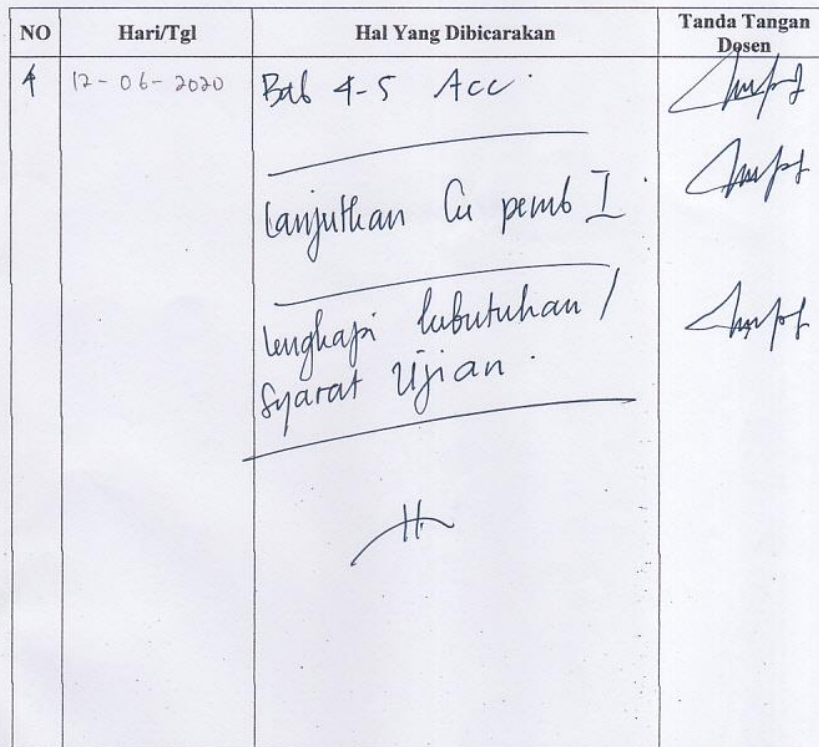 NO Hari/Tgl Hal Yang Dibicarakan Tanda Tangan Dosen
4 12-06-2020 Bab 4-5 Acc.
Lanjutkan Cu pemb I.
lengkapi kebutuhan /
Syarat Ujian.